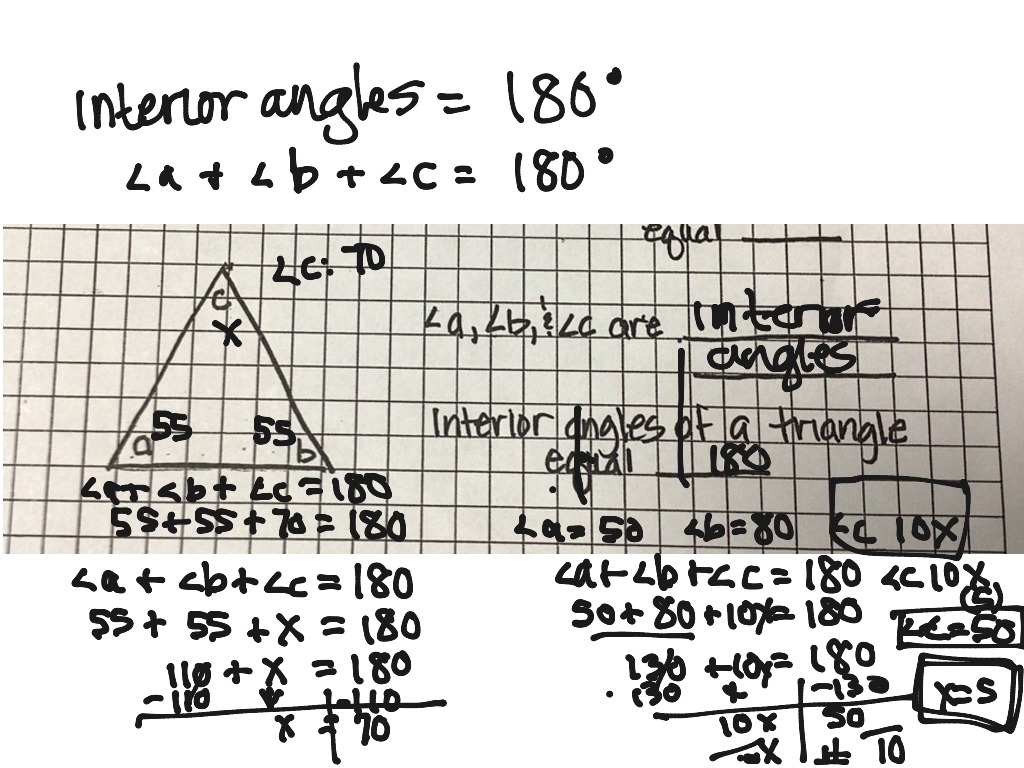 Interior angles = 180°
∠a + ∠b + ∠c = 180°
equal
∠c: 70
c
x
∠a, ∠b, & ∠c are interior
angles
55 55
a b
Interior angles of a triangle
equal 180
∠a + ∠b + ∠c = 180
55 + 55 + 70 = 180
∠a = 50 ∠b = 80 ∠c 10x
∠a + ∠b + ∠c = 180
55 + 55 + x = 180
110 + x = 180
-110 -110
x = 70
∠a + ∠b + ∠c = 180 ∠c 10x
(5)
50 + 80 + 10x = 180 ∠c = 50
130 + 10x = 180
130 -130
10x 50
x = 5
10